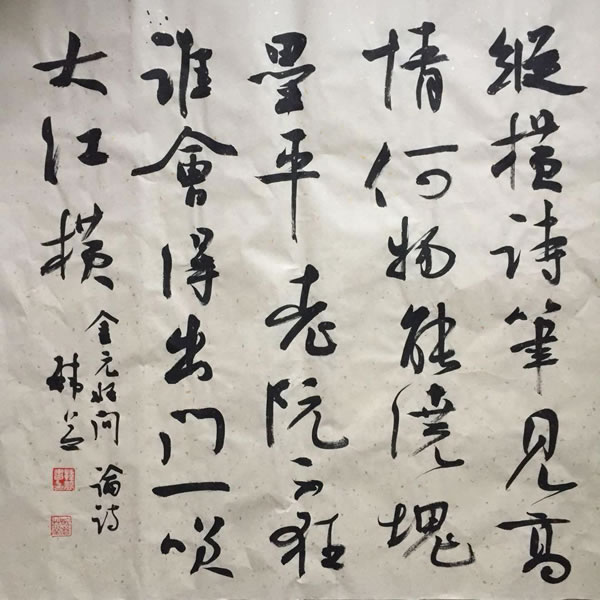 縱橫詩筆見高
情何物能澆塊
壘平老阮不狂
誰會得出門一咲
大江橫
金元好問論詩